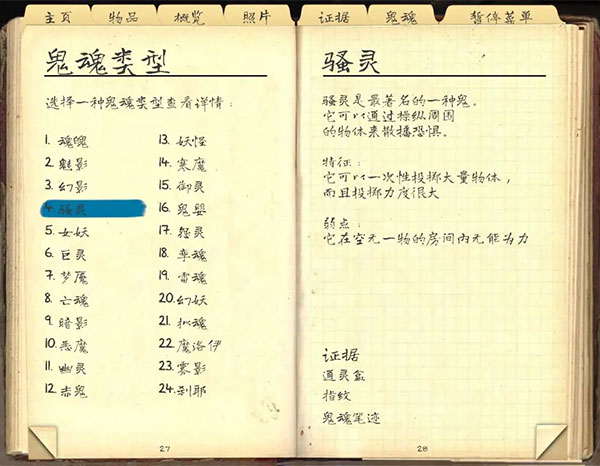 主页 物品 概览 照片 证据 鬼魂 暂停菜单
鬼魂类型
选择一种鬼魂类型查看详情：
1. 魂魄
2. 魅影
3. 幻影
4. 骚灵
5. 女妖
6. 巨灵
7. 梦魇
8. 亡魂
9. 暗影
10. 恶魔
11. 幽灵
12. 赤鬼
13. 妖怪
14. 寒魔
15. 御灵
16. 鬼婴
17. 怨灵
18. 孪魂
19. 雷魂
20. 幻妖
21. 拟魂
22. 魔洛伊
23. 雾影
24. 刹耶
27
骚灵
骚灵是最著名的一种鬼。
它可以通过操纵周围
的物体来散播恐惧。
特征：
它可以一次性投掷大量物体，
而且投掷力度很大
弱点：
它在空无一物的房间内无能为力
证据
通灵盒
指纹
鬼魂笔迹
28